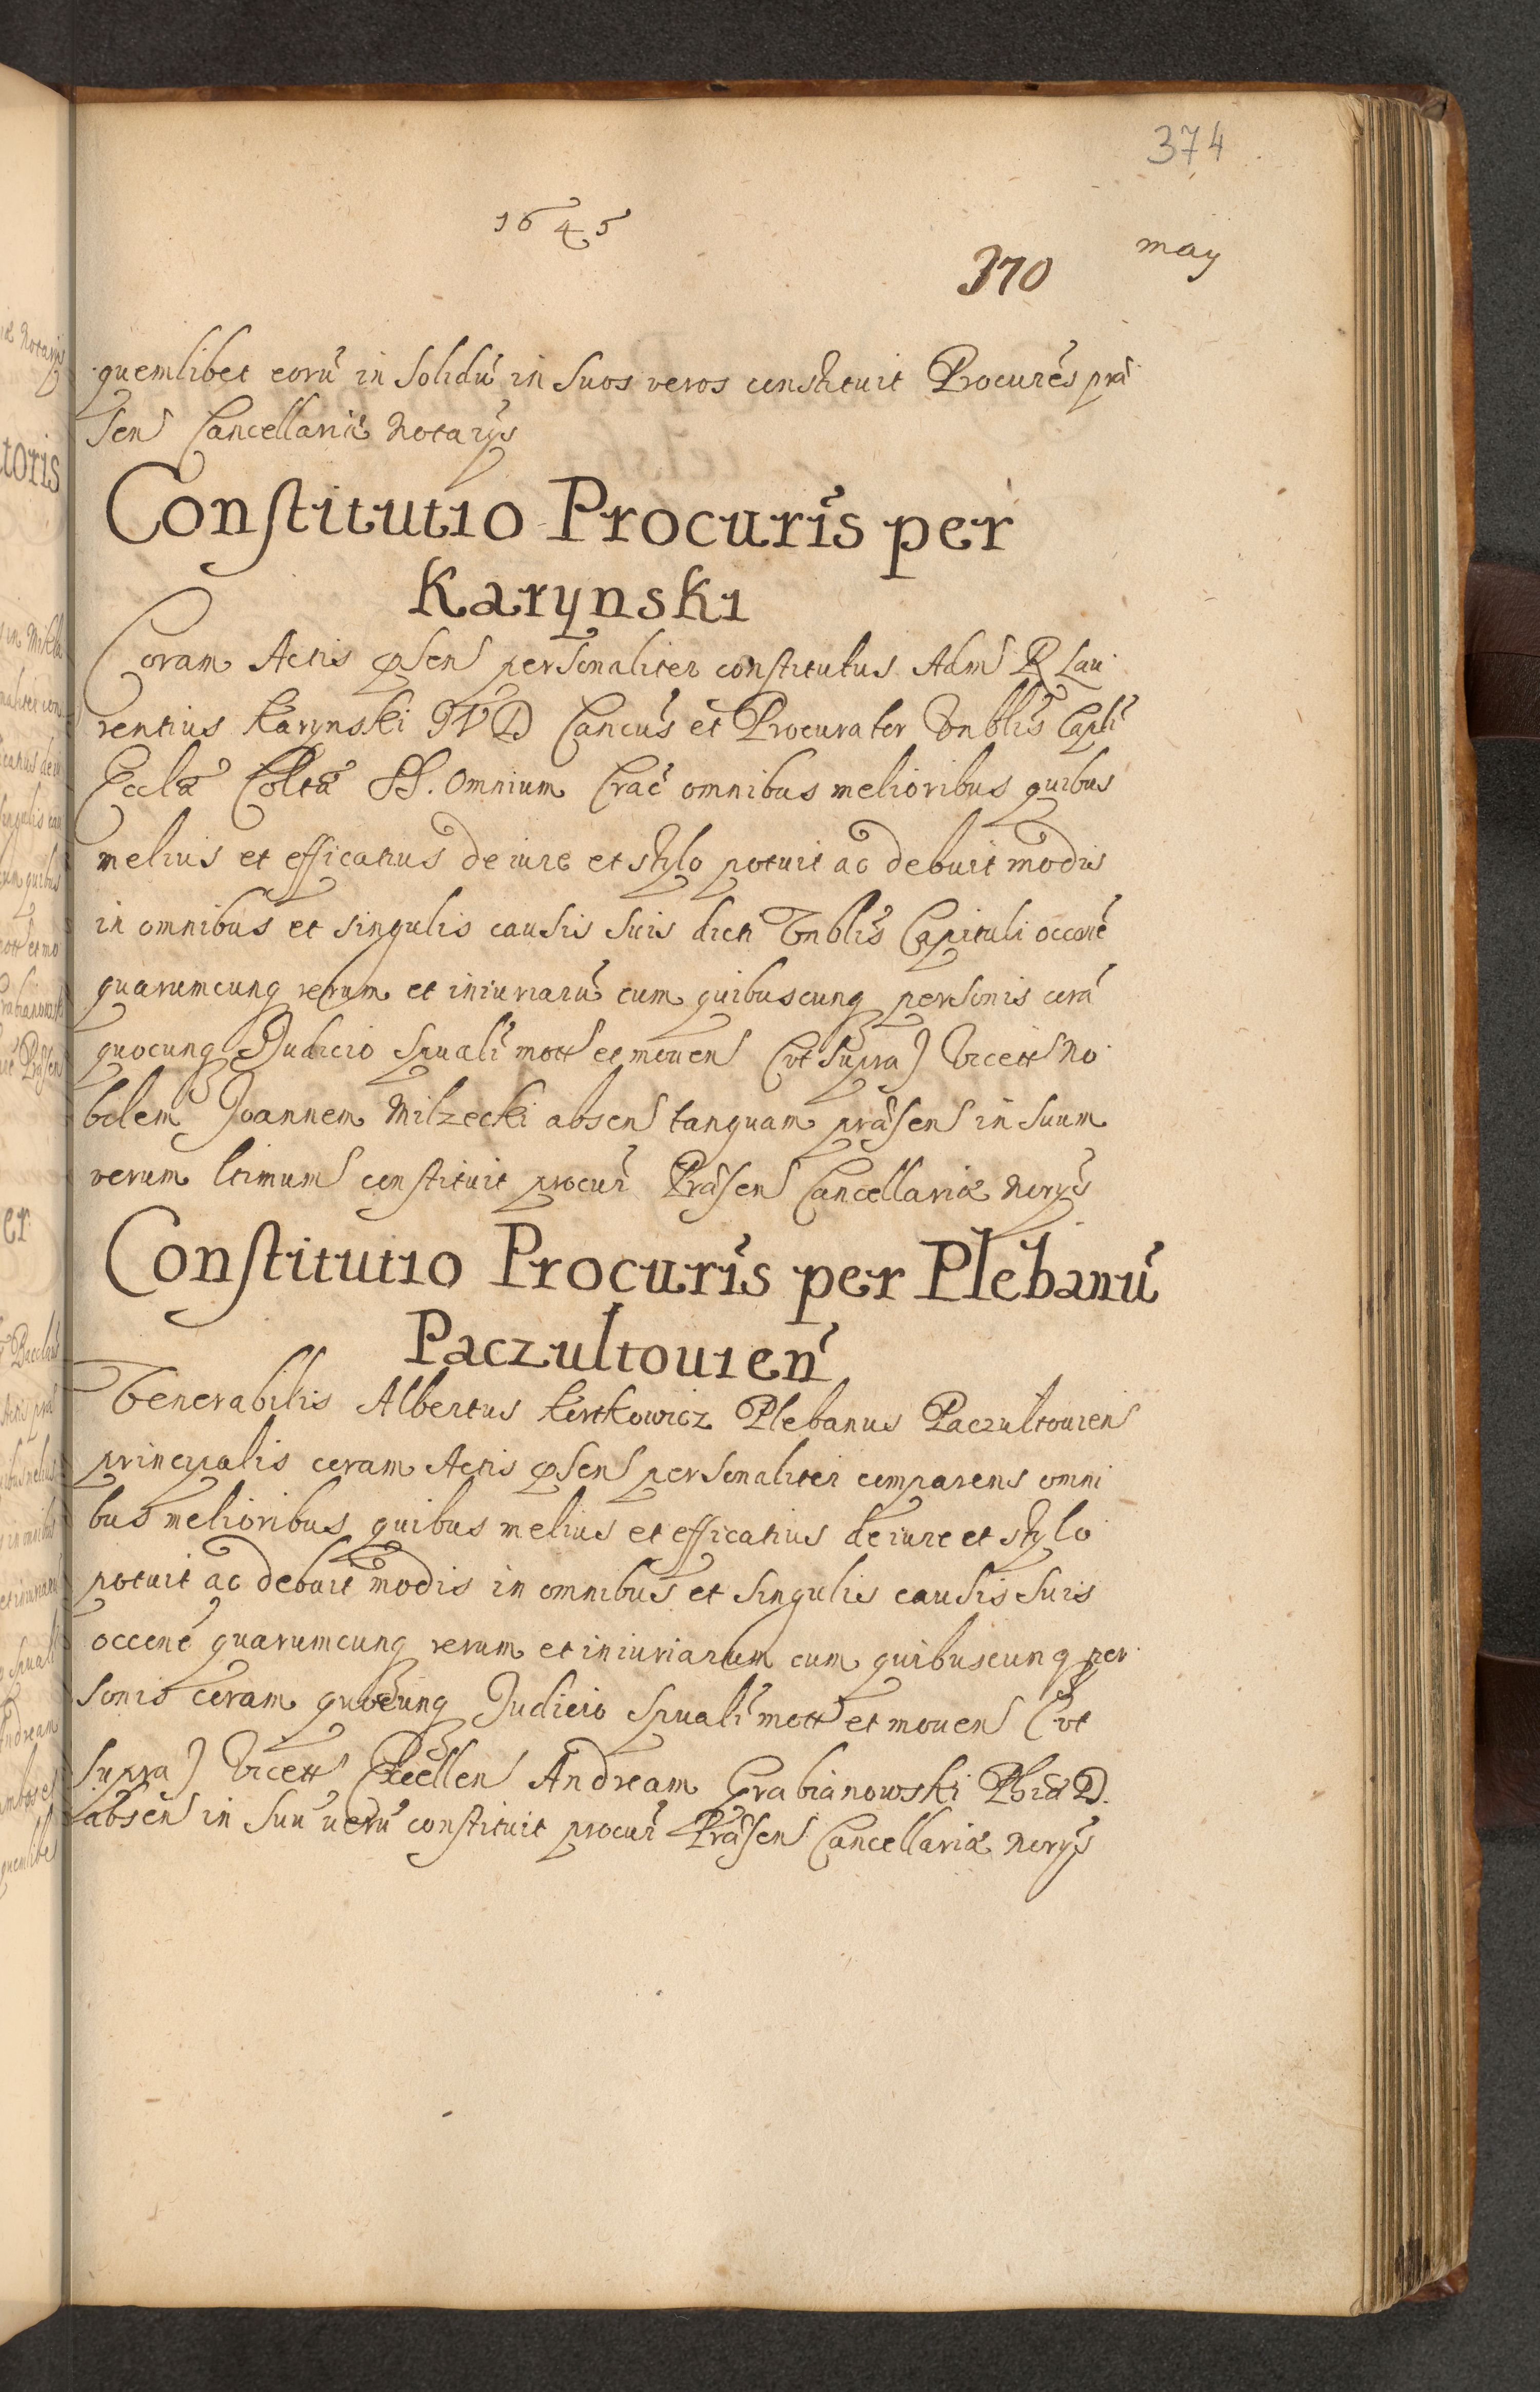 374
1645
370 may
quemlibet eorũ in Solidũ in Suos veros constituit Procures præ
sen Cancellariæ Notarys
Constitutio Procuris per
Karynski
Coram Actis psen personaliter constitutus Adm R Lau
rentius Karynski IVD Cancus et Procurator Vnblis Capli
Eccla Colta SS. Omnium Crac omnibus melioribus quibus
melius et efficatius de iure et stylo potuit ac debuit modis
in omnibus et singulis causis suis dicti Vnblis Capituli occoñe
quarumcunq rerum et iniuriarũ cum quibuscunq personis corã
quocunq Judicio Spuali mott et mouen (vt supra) Vicett No
bilem Joannem Milzecki absen tanquam præsen in suum
verum ltimum constituit procur Præsen Cancellariæ norys
Constitutio Procuris per Plebanũ
Paczultouien
Venerabilis Albertus Kertkowicz Plebanus Paczultouien
principalis coram Actis psen personaliter comparens omni
bus melioribus quibus melius et efficatius de iure et stylo
potuit ac debuit modis in omnibus et singulis causis suis
occone quarumcunq rerum et iniuriarum cum quibuscunq per
sonis coram quocunq Judicio Spuali mott et mouen (vt
supra) Vicett Excellen Andream Grabianowski Phiæ D.
absen in suũ uerũ constituit procur Præsen Cancellariæ norys